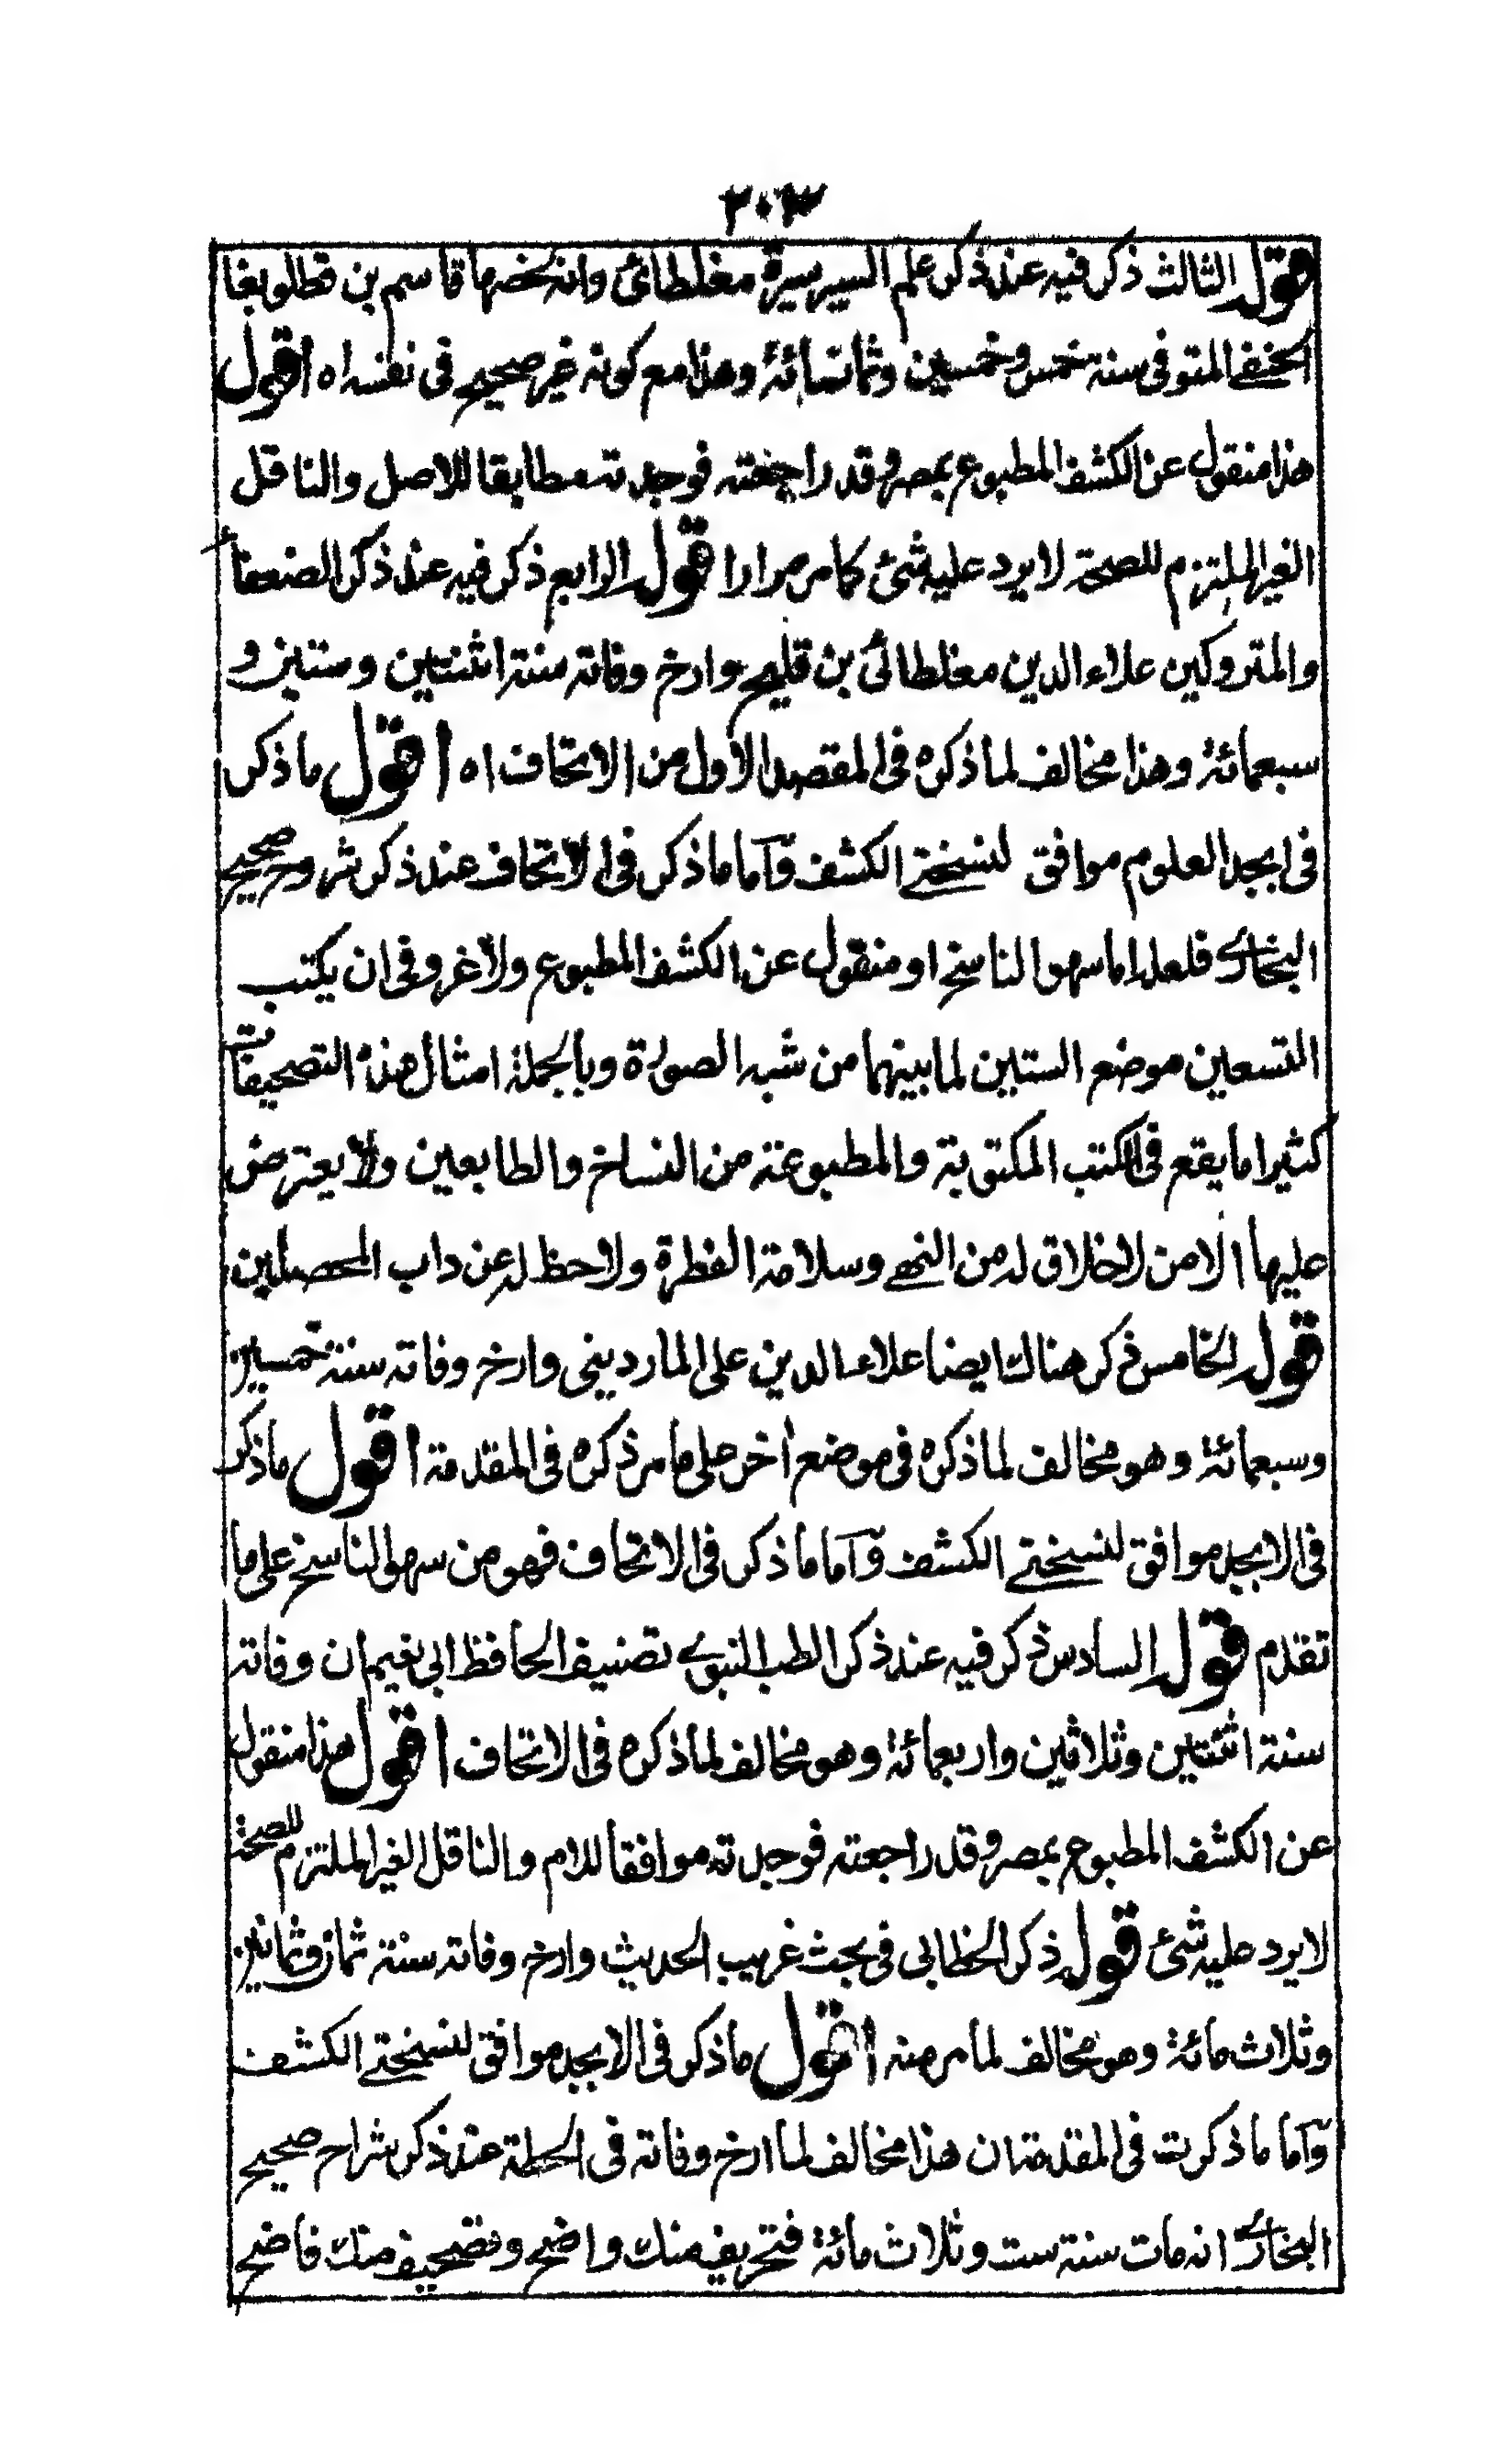 ٢٠٣
قوله الثالث ذكر فيه عند ذكر علم السير سيرة مغلطائى وانه لخصها قاسم بن قطلوبغا
الحنفے المتوفى سنة خمس وخمسين وثمانمائة وهذا مع كونه غير صحيح فى نفسه اه اقول
هذا منقول عن الكشف المطبوع بمصر وقد راجعته فوجدته مطابقا للاصل والناقل
الغير الملتزم للصحة لا يرد عليه شئ كما مر مرارا قوله الرابع ذكر فيه عند ذكر الضعفأ
والمتروكين علاء الدين مغلطائى بن قليج وارخ وفاته سنة اثنتين وستين و
سبعمائة وهذا مخالف لما ذكره فى المقصد الاول من الاتحاف اه اقول ما ذكر
فى ابجد العلوم موافق لنسختے الكشف وآما ما ذكر فى الاتحاف عند ذكر شروح صحيح
البخارے فلعله اما سهو الناسخ او منقول عن الكشف المطبوع ولا غرو فى ان يكتب
التسعين موضع الستين لما بينهما من شبه الصورة وبالجملة امثال هذه التصحيفات
كثيرا ما يقع فى الكتب المكتوبة والمطبوعة من النساخ والطابعين ولا يعترض
عليها الا من لا خلاق له من النهے وسلامة الفطرة ولا حظ له عن داب المحصلين
قوله الخامس ذكر هناك ايضا علاء الدين على الماردينى وارخ وفاته سنة خمسين
وسبعمائة وهو مخالف لما ذكره فى موضع اخر على ما مر ذكره فى المقدمة اقول ما ذكر
فى الابجد موافق لنسختے الكشف وآما ما ذكر فى الاتحاف فهو من سهو الناسخ على ما
تقدم قوله السادس ذكر فيه عند ذكر الطب النبوے تصنيف الحافظ ابى نعيم ان وفاته
سنة اثنتين وثلاثين واربعمائة وهو مخالف لما ذكره فى الاتحاف اقول هذا منقول
عن الكشف المطبوع بمصر وقد راجعته فوجدته موافقا للام والناقل الغير الملتزم للصحة
لا يرد عليه شئ قوله ذكر الخطابى فى بحث غريب الحديث وارخ وفاته سنة ثمان وثمانين
وثلاث مائة وهو مخالف لما مر منه اقول ما ذكر فى الابجد موافق لنسختے الكشف
وآما ما ذكرت فى المقدمة ان هذا مخالف لما ارخ وفاته فى الحطة عند ذكر شراح صحيح
البخارے انه مات سنة ست وثلاث مائة فتحريف منك واضح وتصحيف منك فاضح